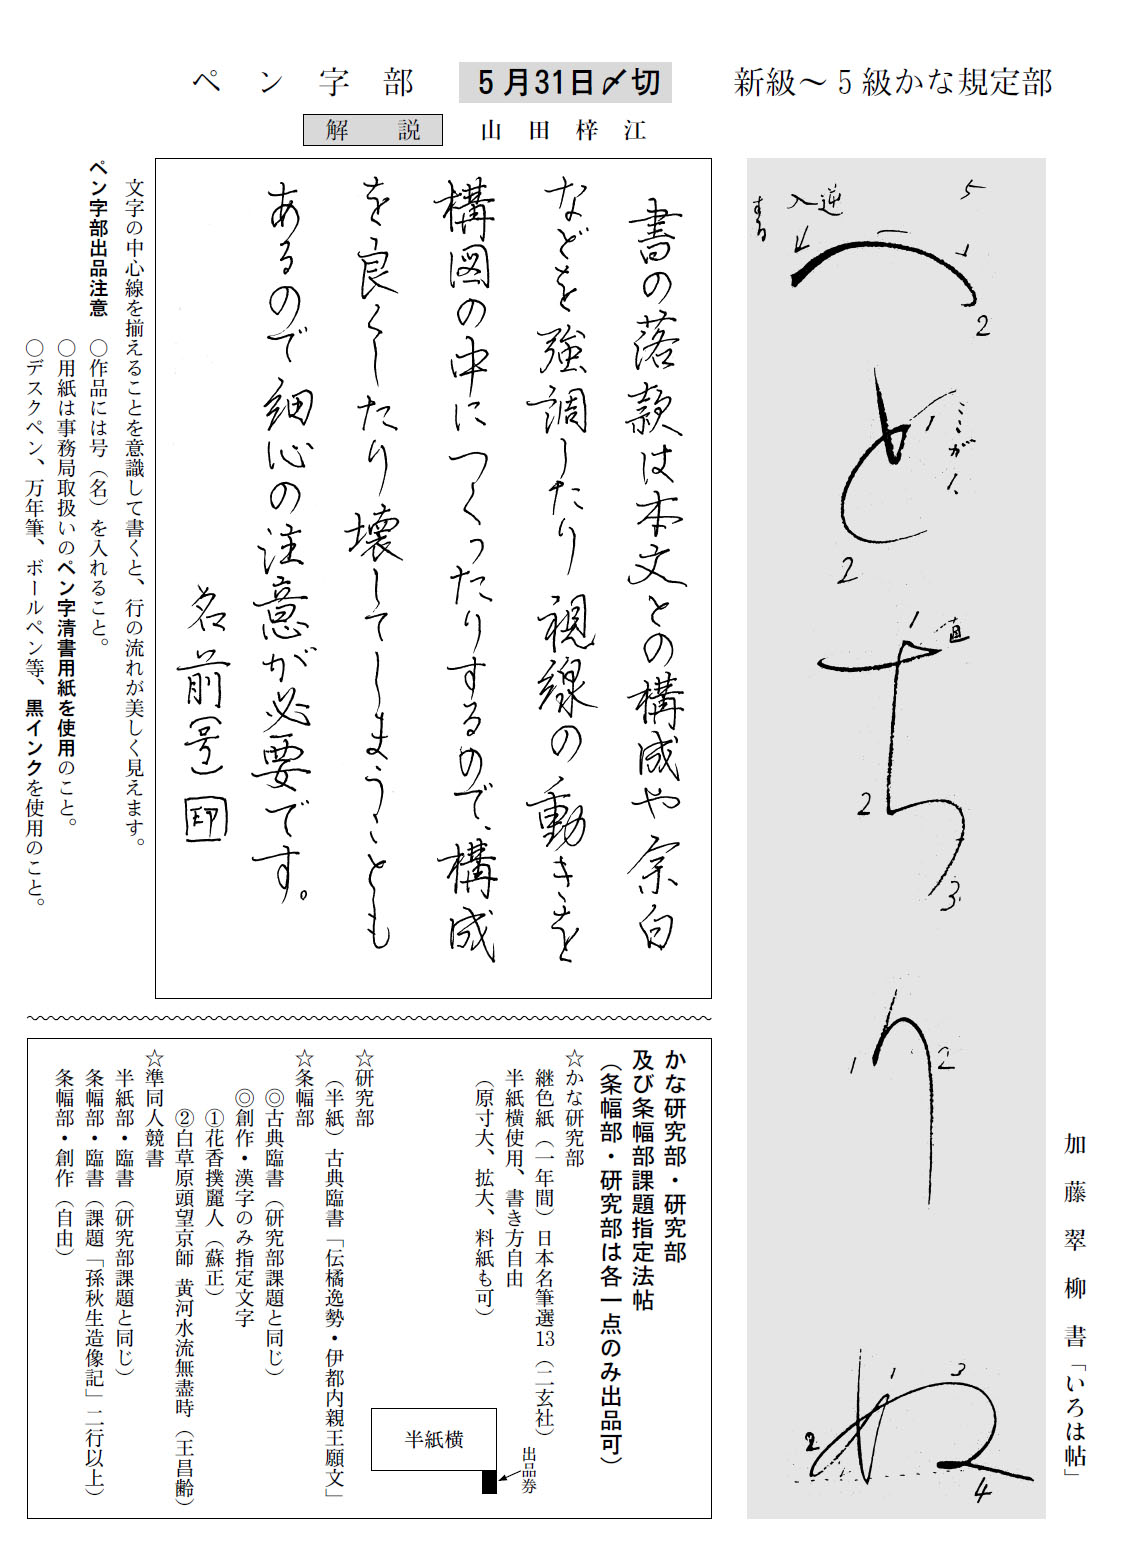 新級～5級かな規定部
5月31日〆切
ペン字部
山田梓江
解説
加藤翠柳書「いろは帖」
5
逆
入
する
1
2
へ
と
1
2
ち
直
1
2
3
り
1
2
わ
1
2
3
4
書の落款は本文との構成や余白
などを強調したり視線の動きを
構図の中につくったりするので、構成
を良くしたり壊してしまうことも
あるので細心の注意が必要です。
名前(号)印
文字の中心線を揃えることを意識して書くと、行の流れが美しく見えます。
ペン字部出品注意 〇作品には号（名）を入れること。
〇用紙は事務局取扱いのペン字清書用紙を使用のこと。
〇デスクペン、万年筆、ボールペン等、黒インクを使用のこと。
かな研究部・研究部
及び条幅部課題指定法帖
（条幅部・研究部は各一点のみ出品可）
☆かな研究部
継色紙（一年間）日本名筆選13（二玄社）
半紙横使用、書き方自由
（原寸大、拡大、料紙も可）
半紙横
出品券
☆研究部
（半紙）古典臨書「伝橘逸勢・伊都内親王願文」
☆条幅部
◎古典臨書（研究部課題と同じ）
◎創作・漢字のみ指定文字
①花香撲麗人（蘇正）
②白草原頭望京師 黄河水流無盡時（王昌齢）
☆準同人競書
半紙部・臨書（研究部課題と同じ）
条幅部・臨書（課題「孫秋生造像記」二行以上）
条幅部・創作（自由）